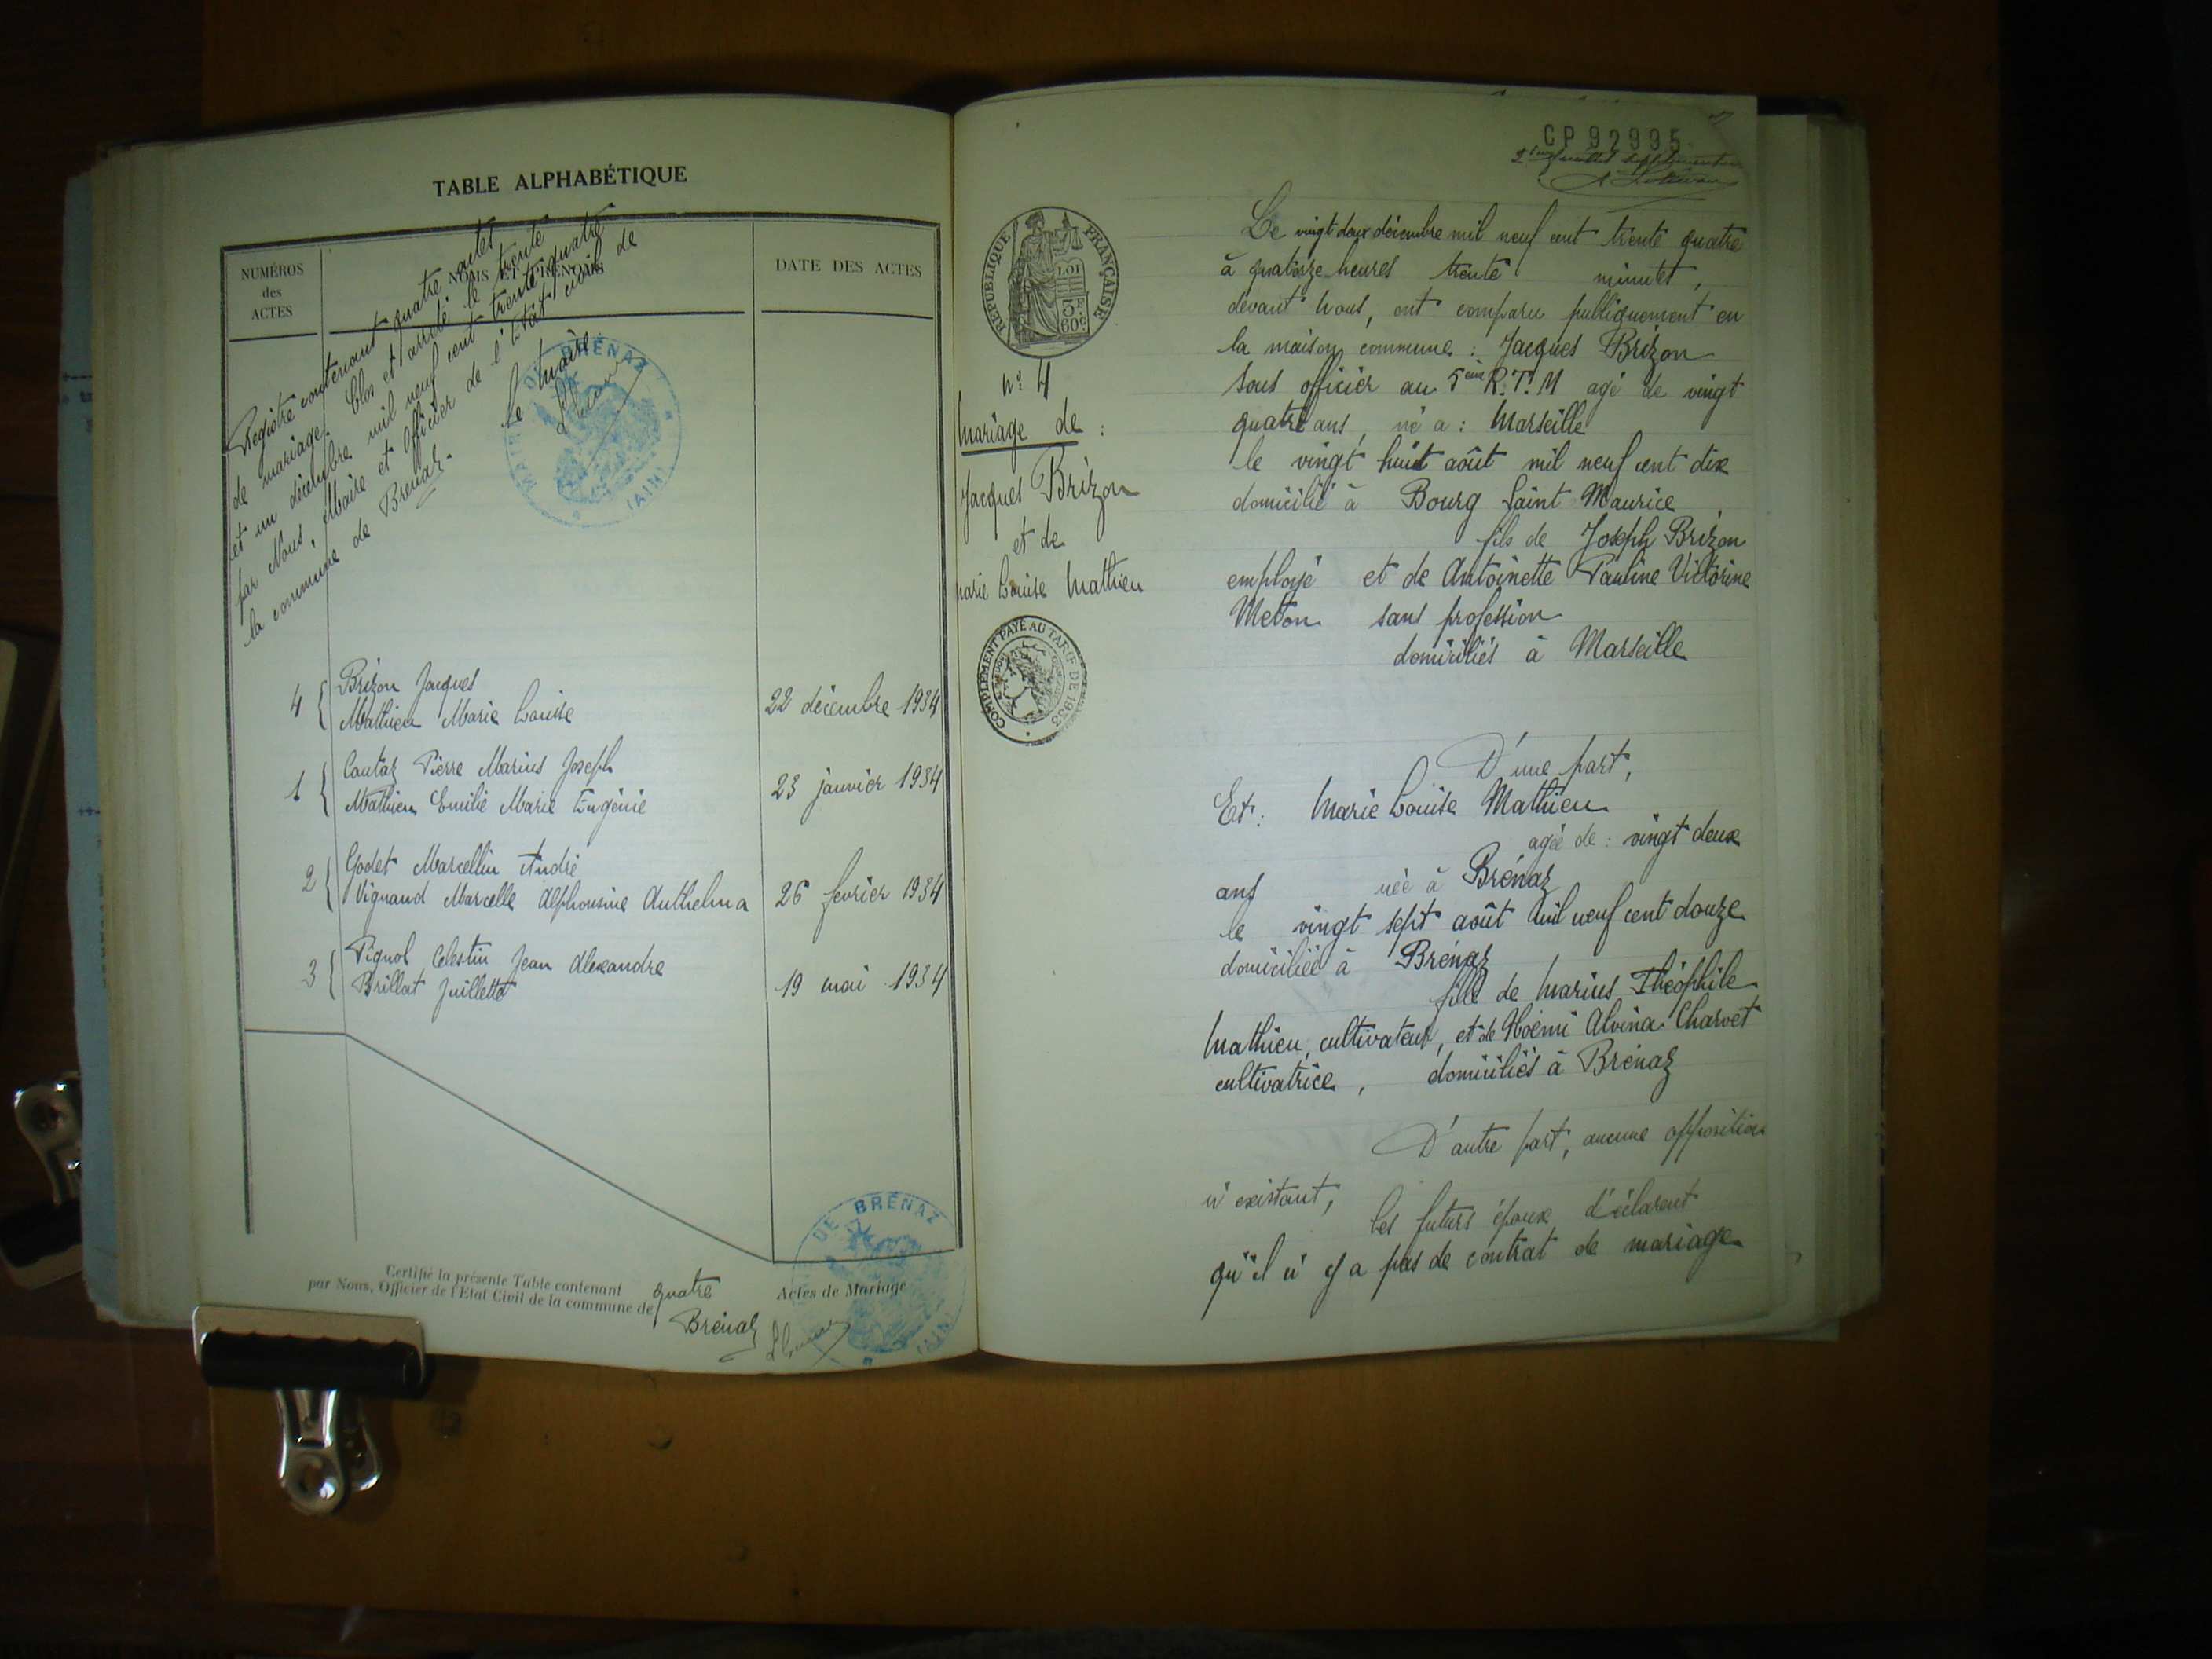 TABLE ALPHABÉTIQUE
NUMÉROS
des
ACTES
NOMS ET PRÉNOMS
DATE DES ACTES
Registre contenant quatre actes
de mariage. Clos et arrêté le trente
et un décembre mil neuf cent trente quatre
par Nous, Maire et Officier de l'Etat civil de
la commune de Brénaz.
Le Maire
DE BRÉNAZ
(AIN)
4
Brizon Jacques
Mathieu Marie Louise
22 décembre 1934
1
Cautaz Pierre Marius Joseph
Mathieu Emilie Marie Eugénie
23 janvier 1934
2
Godet Marcellin André
Vignand Marcelle Alphonsine Anthelma
26 fevrier 1934
3
Pignol Célestin Jean Alexandre
Brillat Juillette
19 mai 1934
Certifié la présente Table contenant quatre Actes de Mariage
par Nous, Officier de l'Etat Civil de la commune de Brénaz
DE BRÉNAZ
(AIN)
CP 92995
RÉPUBLIQUE FRANÇAISE
LOI
3F
60c
n° 4
Mariage de :
Jacques Brizon
et de
Marie Louise Mathieu
COMPLÉMENT PAYÉ AU TARIF DE 1933
Le vingt deux décembre mil neuf cent trente quatre
à quatorze heures trente minutes,
devant nous, ont comparu publiquement en
la maison commune : Jacques Brizon
sous officier au 5ème R.T.M agé de vingt
quatre ans, né a : Marseille
le vingt huit août mil neuf cent dix
domicilié à Bourg Saint Maurice
fils de Joseph Brizon
employé et de Antoinette Pauline Victorine
Meton sans profession
domiciliés à Marseille
D'une part,
Et : Marie Louise Mathieu
agée de : vingt deux
ans née à Brénaz
le vingt sept août mil neuf cent douze
domiciliée à Brénaz
fille de Marius Théophile
Mathieu, cultivateur, et de Noémi Alvina Charvet
cultivatrice, domiciliés à Brénaz
D'autre part, aucune opposition
n'existant,
Les futurs époux déclarent
qu'il n'y a pas de contrat de mariage